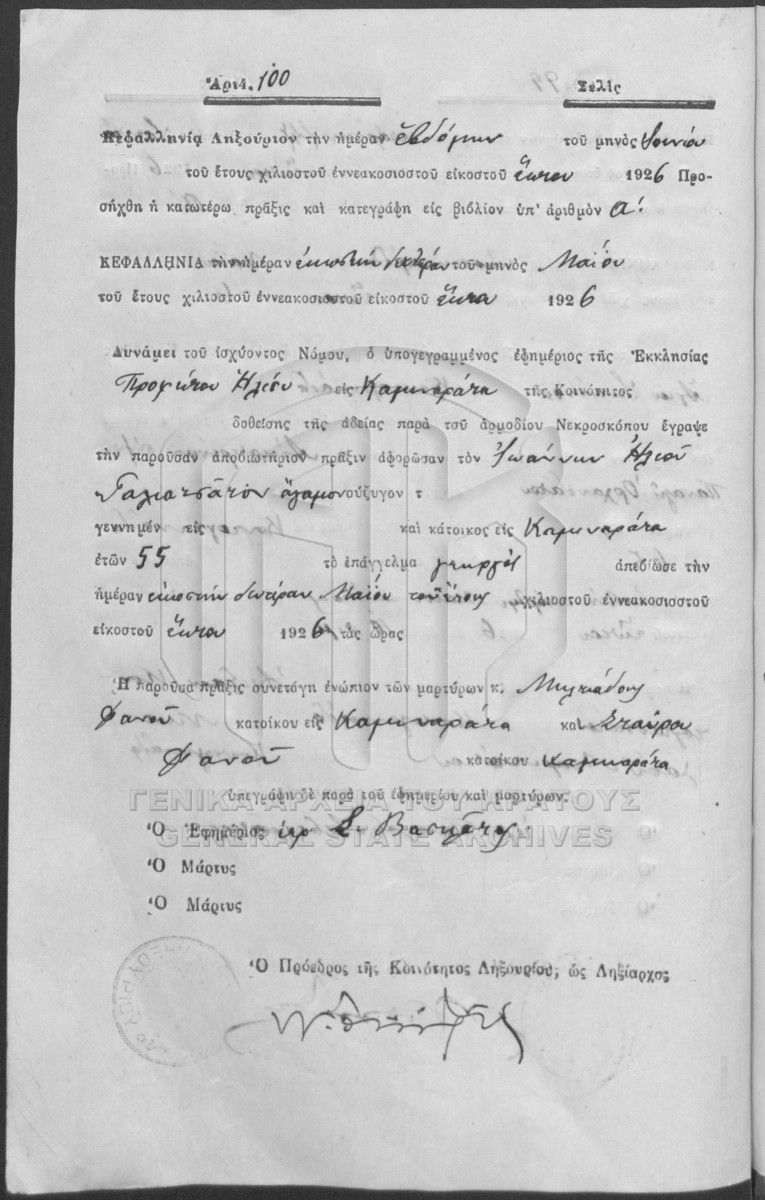 Ἀριθ. 100 Σελὶς
Κεφαλληνίᾳ Ληξούριον τὴν ἡμέραν ἑβδόμην τοῦ μηνὸς Ἰουνίου
τοῦ ἔτους χιλιοστοῦ ἐννεακοσιοστοῦ εἰκοστοῦ ἕκτου 1926 Προ-
σήχθη ἡ κατωτέρω πρᾶξις καὶ κατεγράφη εἰς βιβλίον ὑπ' ἀριθμὸν Α'.
ΚΕΦΑΛΛΗΝΙΑ τὴν ἡμέραν εἰκοστὴν δευτέραν τοῦ μηνὸς Μαΐου
τοῦ ἔτους χιλιοστοῦ ἐννεακοσιοστοῦ εἰκοστοῦ ἕκτου 1926
Δυνάμει τοῦ ἰσχύοντος Νόμου, ὁ ὑπογεγραμμένος ἐφημέριος τῆς Ἐκκλησίας
Προφήτου Ἠλιοὺ εἰς Καμιναράτα τῆς Κοινότητος
δοθείσης τῆς ἀδείας παρὰ τοῦ ἁρμοδίου Νεκροσκόπου ἔγραψε
τὴν παροῦσαν ἀποβιωτήριον πρᾶξιν ἀφορῶσαν τὸν Ἰωάννην Ἠλιοῦ
Γαλιατσᾶτον ἄγαμον σύζυγον τ
γεννημέν εἰς καὶ κάτοικος εἰς Καμιναράτα
ἐτῶν 55 τὸ ἐπάγγελμα γεωργὸς ἀπεβίωσε τὴν
ἡμέραν εἰκοστὴν δευτέραν Μαΐου τοῦ ἔτους χιλιοστοῦ ἐννεακοσιοστοῦ
εἰκοστοῦ ἕκτου 1926 τὰς ὥρας
Ἡ παροῦσα πρᾶξις συνετάγη ἐνώπιον τῶν μαρτύρων κ. Μιλτιάδους
Φανοῦ κατοίκου εἰς Καμιναράτα καὶ Σταύρου
Φανοῦ κατοίκου Καμιναράτα
ὑπεγράφη δὲ παρὰ τοῦ ἐφημερίου καὶ μαρτύρων.
ΓΕΝΙΚΑ ΑΡΧΕΙΑ ΤΟΥ ΚΡΑΤΟΥΣ
Ὁ Ἐφημέριος ἱερ Σ.
GENERAL STATE ARCHIVES
Ὁ Μάρτυς
Ὁ Μάρτυς
Ὁ Πρόεδρος τῆς Κοινότητος Ληξουρίου, ὡς Ληξίαρχος